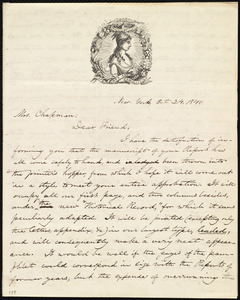 New York Oct 24, 1840.
Mrs. Chapman:
Dear Friend,
I have the satisfaction of in-
forming you that the manuscript of your Report has
all come safely to hand, and already been thrown into
the printer's hopper, from which I hope it will come out
in a style to meet your entire approbation. It will
occupy all our first page, and two columns besides,
under the new "Historical Record," for which it was
peculiarly adapted. It will be printed (excepting only
the letters appendix,) in our largest type, leaded,
and will consequently make a very neat appear-
ance. It would be well if the pages of the pam-
phlet would correspond in size with the Reports of
former years, but the expense of overrunning in